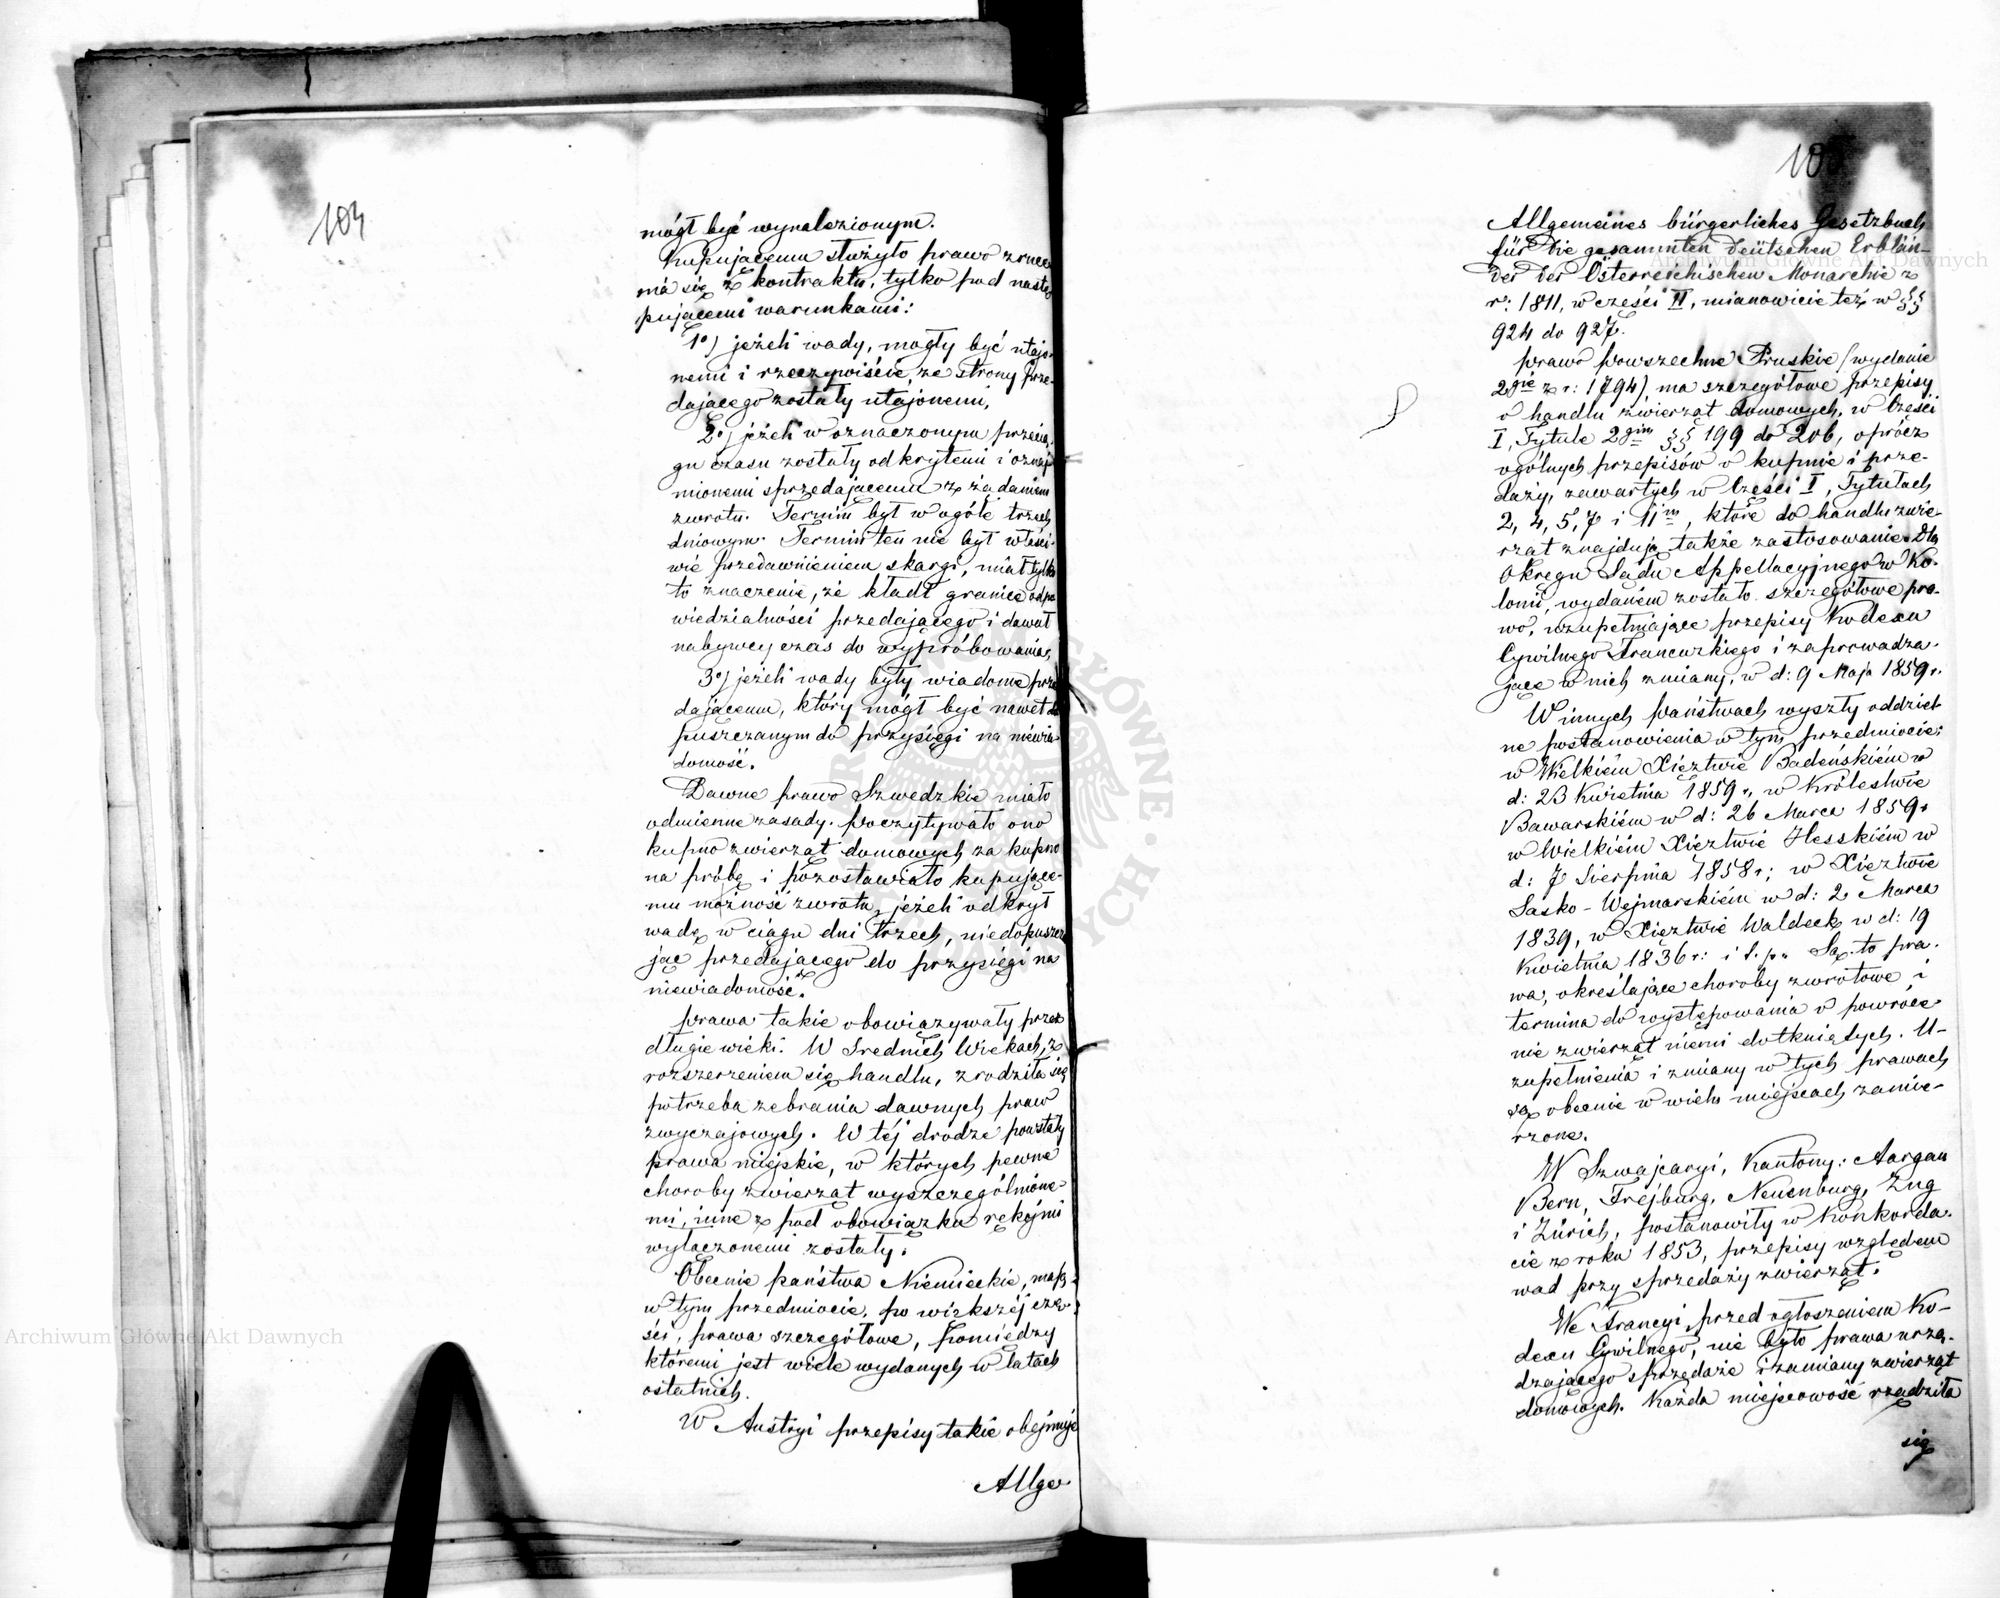 104
mógł być wynalezionym.
Kupującemu służyło prawo zrzec
nia się z kontraktu, tylko pod nastę
pującemi warunkami:
1o) jeżeli wady, mogły być utajo-
nemi i rzeczywiście, ze strony prze-
dającego zostały utajonemi,
2o) jeżeli w oznaczonym przecią-
gu czasu zostały odkrytemi i oznaj
mionemi sprzedającemu z żądaniem
zwrotu. Termin był w ogóle trzech
dniowym. Termin ten nie był właści-
wie przedawnieniem skargi, miał tylko
to znaczenie, że kładł granice odpo
wiedzialności przedającego i dawał
nabywcy czas do wypróbowania;
3o) jeżeli wady były wiadome prze
dającemu, który mógł być nawet do
puszczanym do przysięgi na niewia-
domość.
Dawne prawo Szwedzkie miało
odmienne zasady. Poczytywało ono
kupno zwierząt domowych za kupno
na próbę i pozostawiało kupujące-
mu możność zwrotu, jeżeli odkrył
wadę w ciągu dni trzech, niedopuszcza
jąc przedającego do przysięgi na
niewiadomość.
Prawa takie obowiązywały przez
długie wieki. W Średnich Wiekach, z
rozszerzeniem się handlu, zrodziła się
potrzeba zebrania dawnych praw
zwyczajowych. W tej drodze powstały
prawa miejskie, w których pewne
choroby zwierząt wyszczególnione-
mi, inne z pod obowiązku rękojmi
wyłączonemi zostały.
Obecnie państwa Niemieckie, mają
w tym przedmiocie, po większej czę-
ści, prawa szczegółowe, pomiędzy
któremi jest wiele wydanych w latach
ostatnich.
W Austryi przepisy takie obejmuje
Allge
Allgemeines bürgerliches Gesetzbuch
für die gesammten deütschen Erblän-
der der Österreichischen Monarchie z
r: 1811, w części II, mianowicie też w §§
924 do 927.
Prawo Powszechne Pruskie (wydanie
2gie z r: 1794), ma szczegółowe przepisy
o handlu zwierząt domowych, w Części
I, Tytule 2gim §§ 199 do 206, oprócz
ogólnych przepisów o kupnie i prze-
daży, zawartych w Części I, Tytułach
2, 4, 5, 7 i 11im, które do handlu zwie-
rząt znajdują także zastosowanie. Dla
Okręgu Sądu Appellacyjnego w Ko-
lonii, wydaném zostało szczegółowe pra-
wo, uzupełniające przepisy Kodexu
Cywilnego Francuzkiego i zaprowadza-
jące w nich zmiany, w d: 9 Maja 1859 r.
W innych państwach wyszły oddziel-
ne postanowienia w tym przedmiocie:
w Wielkiém Xięztwie Badeńskiém w
d: 23 Kwietnia 1859 r, w Królestwie
Bawarskiém w d: 26 Marca 1859 r
w Wielkiém Xięztwie Hesskiém w
d: 7 Sierpnia 1858 r; w Xięztwie
Sasko-Wejmarskiém w d: 2 Marca
1839, w Xięztwie Waldeck w d: 19
Kwietnia 1836 r: i t. p. Są to pra-
wa, określające choroby zwrotowe i
termina do występowania o powróce-
nie zwierząt niemi dotkniętych. U-
zupełnienia i zmiany w tych prawach
są obecnie w wielu miejscach zamie-
rzone.
W Szwajcaryi, Kantony: Aargau
Bern, Frejburg, Neuenburg, Zug
i Zürich, postanowiły w Konkorda-
cie z roku 1853, przepisy względem
wad przy sprzedaży zwierząt.
We Francyi, przed ogłoszeniem Ko-
dexu Cywilnego, nie było prawa urzą-
dzającego sprzedaże i zamiany zwierząt
domowych. Każda miejscowość rządziła
się
Archiwum Główne Akt Dawnych
Archiwum Główne Akt Dawnych